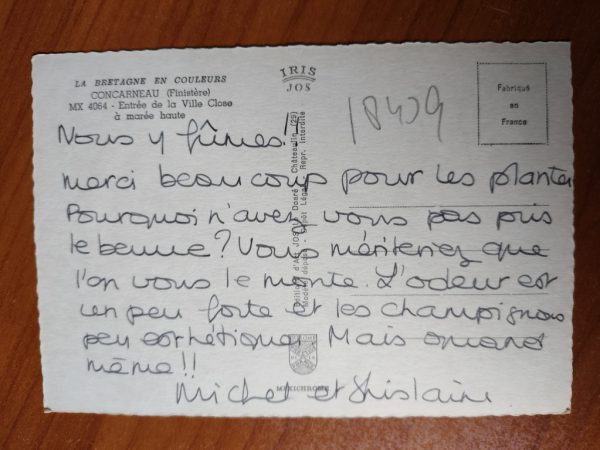 LA BRETAGNE EN COULEURS
CONCARNEAU (Finistère)
MX 4064 - Entrée de la Ville Close
à marée haute
IRIS
JOS
18409
Fabriqué
en
France
Nous y fûmes !
merci beaucoup pour les plantes
Pourquoi n'avez vous pas pris
le beurre ? Vous mériteriez que
l'on vous le monte. L'odeur est
un peu forte et les champignons
peu esthétiques. Mais quand
même !!
Michel et Ghislaine
Editions d'Art JOS Le Doaré, Châteaulin (29)
Modèle déposé - Dépôt Légal Repr. interdite
MEXICHROME